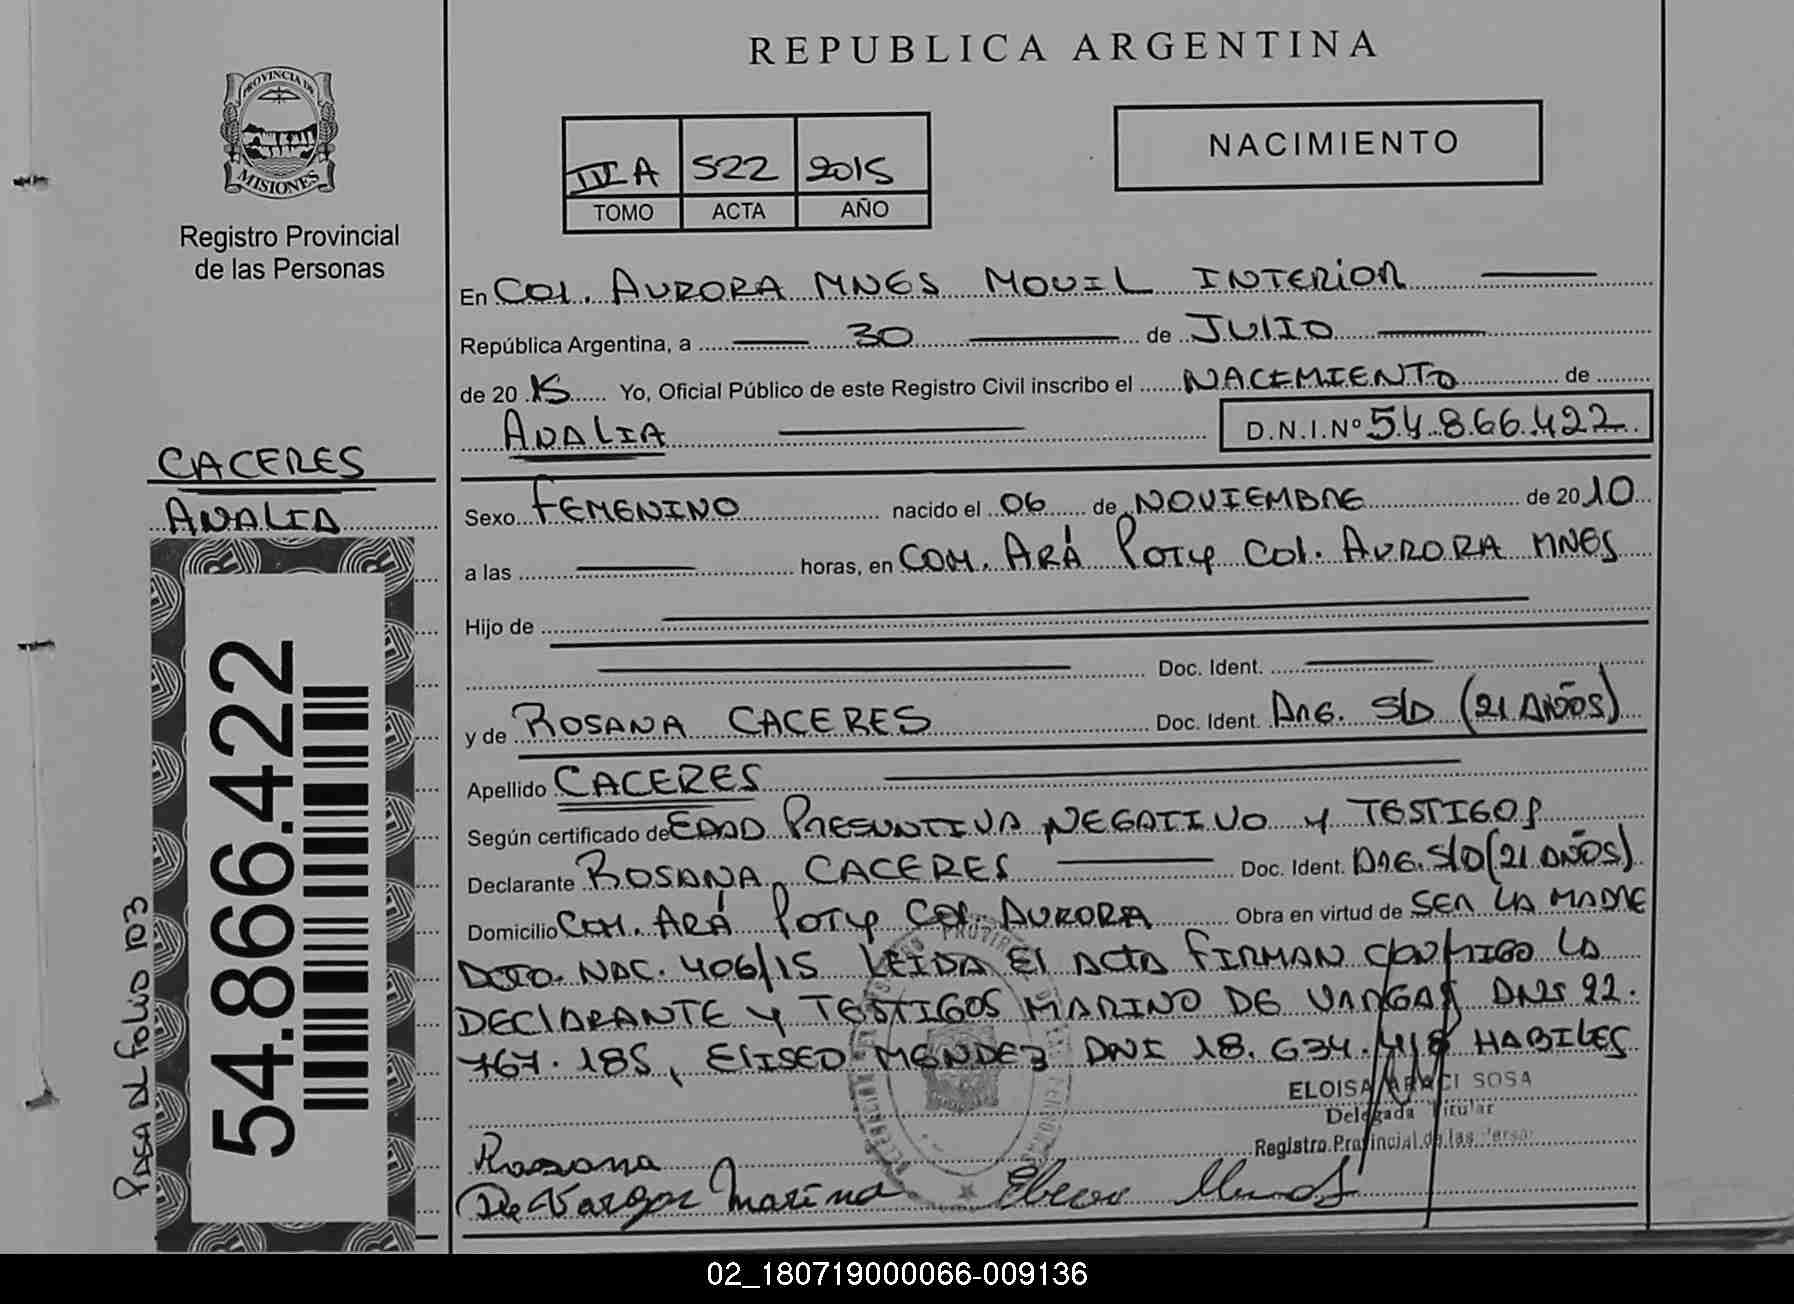 REPUBLICA ARGENTINA
PROVINCIA DE
MISIONES
Registro Provincial
de las Personas
NACIMIENTO
A 522 2015
TOMO ACTA AÑO
En Col. AURORA MNES MOVIL INTERIOR
República Argentina, a 30 de JULIO
de 2015 Yo, Oficial Público de este Registro Civil inscribo el NACIMIENTO de
ANALIA D.N.I.Nº 54.866.422
CACERES
ANALIA
Sexo FEMENINO nacido el 06 de NOVIEMBRE de 2010
a las horas, en COM. ARÁ POTY Col. AURORA MNES
Hijo de
Doc. Ident.
y de ROSANA CACERES Doc. Ident. ARG. S/D (21 AÑOS)
Apellido CACERES
Según certificado de EDAD PRESUNTIVA NEGATIVO Y TESTIGOS
Declarante ROSANA CACERES Doc. Ident. ARG. S/D (21 AÑOS)
Domicilio COM. ARÁ POTY Col. AURORA Obra en virtud de SER LA MADRE
DCTO. NAC. 406/15 LEIDA El ACTA FIRMAN CONMIGO LA
DEClARANTE Y TESTIGOS MARINO DE VARGAS DNI 92.
767.185, ElISEO MENDEZ DNI 18.634.418 HABILES
ELOISA SOSA
Delegada Titular
Registro Provincial de las Personas
Rosana
De Vargas Marino
54.866.422
PASA Al FOLIO 103
02_180719000066-009136